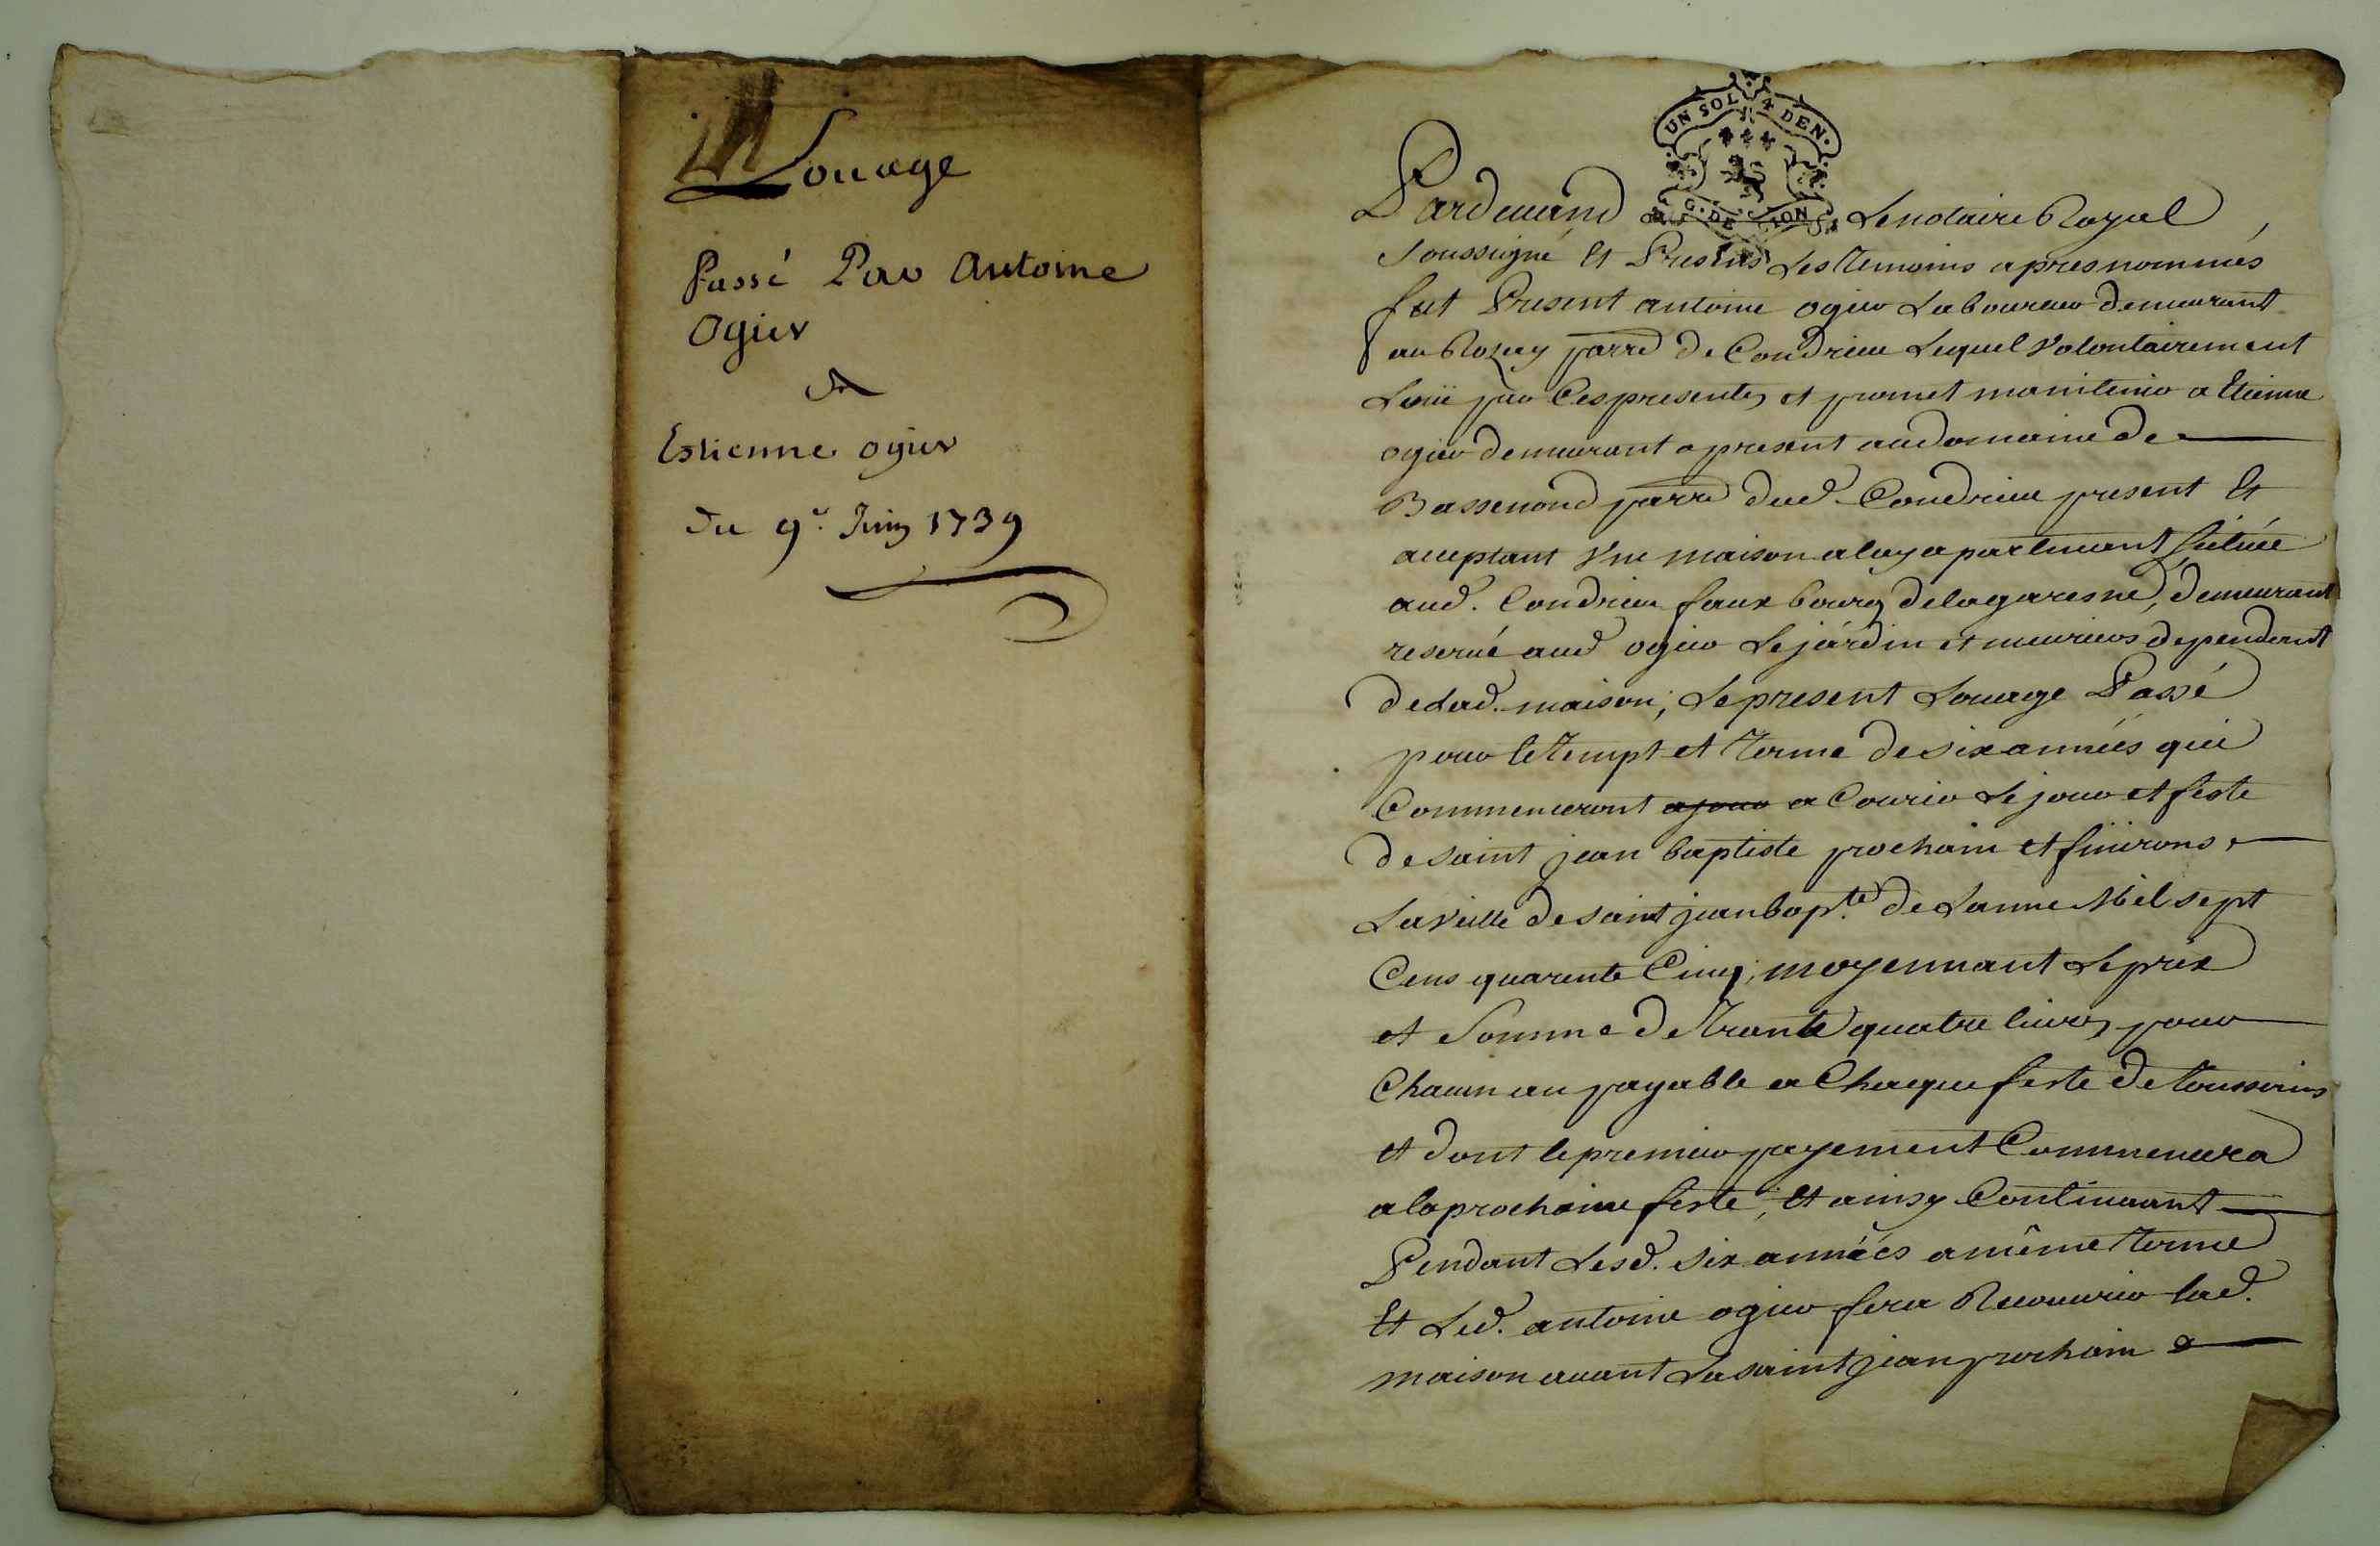 Louage
Passé Par Antoine
Ogier
A
Estienne ogier
Du 9e. Juin 1739
UN SOL 4 DEN.
G. DE LION
Pardevand Le notaire Royal
soussigné Et Presens Les Temoins apres nommés
fut Present antoine ogier Laboureur demeurant
au Rozay parrē de Condrieu Lequel Volontairement
Loüe par Ces presentes et promet maintenir a Etienne
ogier demeurant a present au domaine de
Bassenond parrē dud. Condrieu present Et
acceptant Vne maison a luy apartenant sictuée
aud. Condrieu faux bourg de la garesne, demeurant
reservé aud ogier Le jardin et meuriers dependant
de lad. maison; Le present Louage Passé
pour le Tempt et Terme de six années qui
Commenceront ajour a Courir Le jour et feste
de saint jean baptiste prochain et finirons
La Veille de saint jean bap.te de Lanne Mil sept
Cens quarente Cinq, moyennant Le prix
et Somme de Trante quatre livres pour
Chacun an payable a Chaque feste de toussains
et dont le premier payement Commencera
a la prochaine feste, Et ainsy Continuant
Pendant Lesd. six années a même Terme
Et Led. antoine ogier fera Recouvrir lad.
maison avant La saint jean prochain